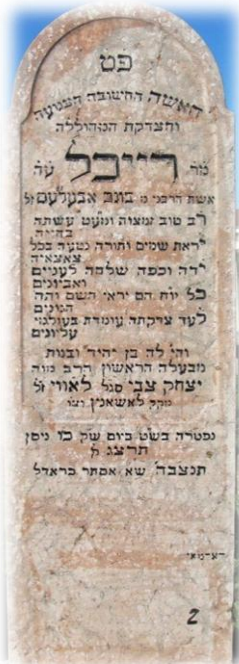 פט
האשה החשובה הצנועה
והצדקת המהוללה
מר רייכל עה
אשת הרבני מ בונם אבעלעס זל
רב טוב ומצוה ומעט עשתה
בחייה
יראת שמים ותורה נטעה בכל
צאצאיה
ידה וכפה שלחה לעניים
ואביונים
כל יום הם יראי השם
לעד צדקתה עומדת
עליונים
והי לה בן יחיד ובנות
מבעלה הראשון הרב מוה
יצחק צבי סגל לאווי זל
מקק לאשאנץ
נפטרה בשט ביום שק כו ניסן
תרצג ל
תנצבה שא אסתר
2